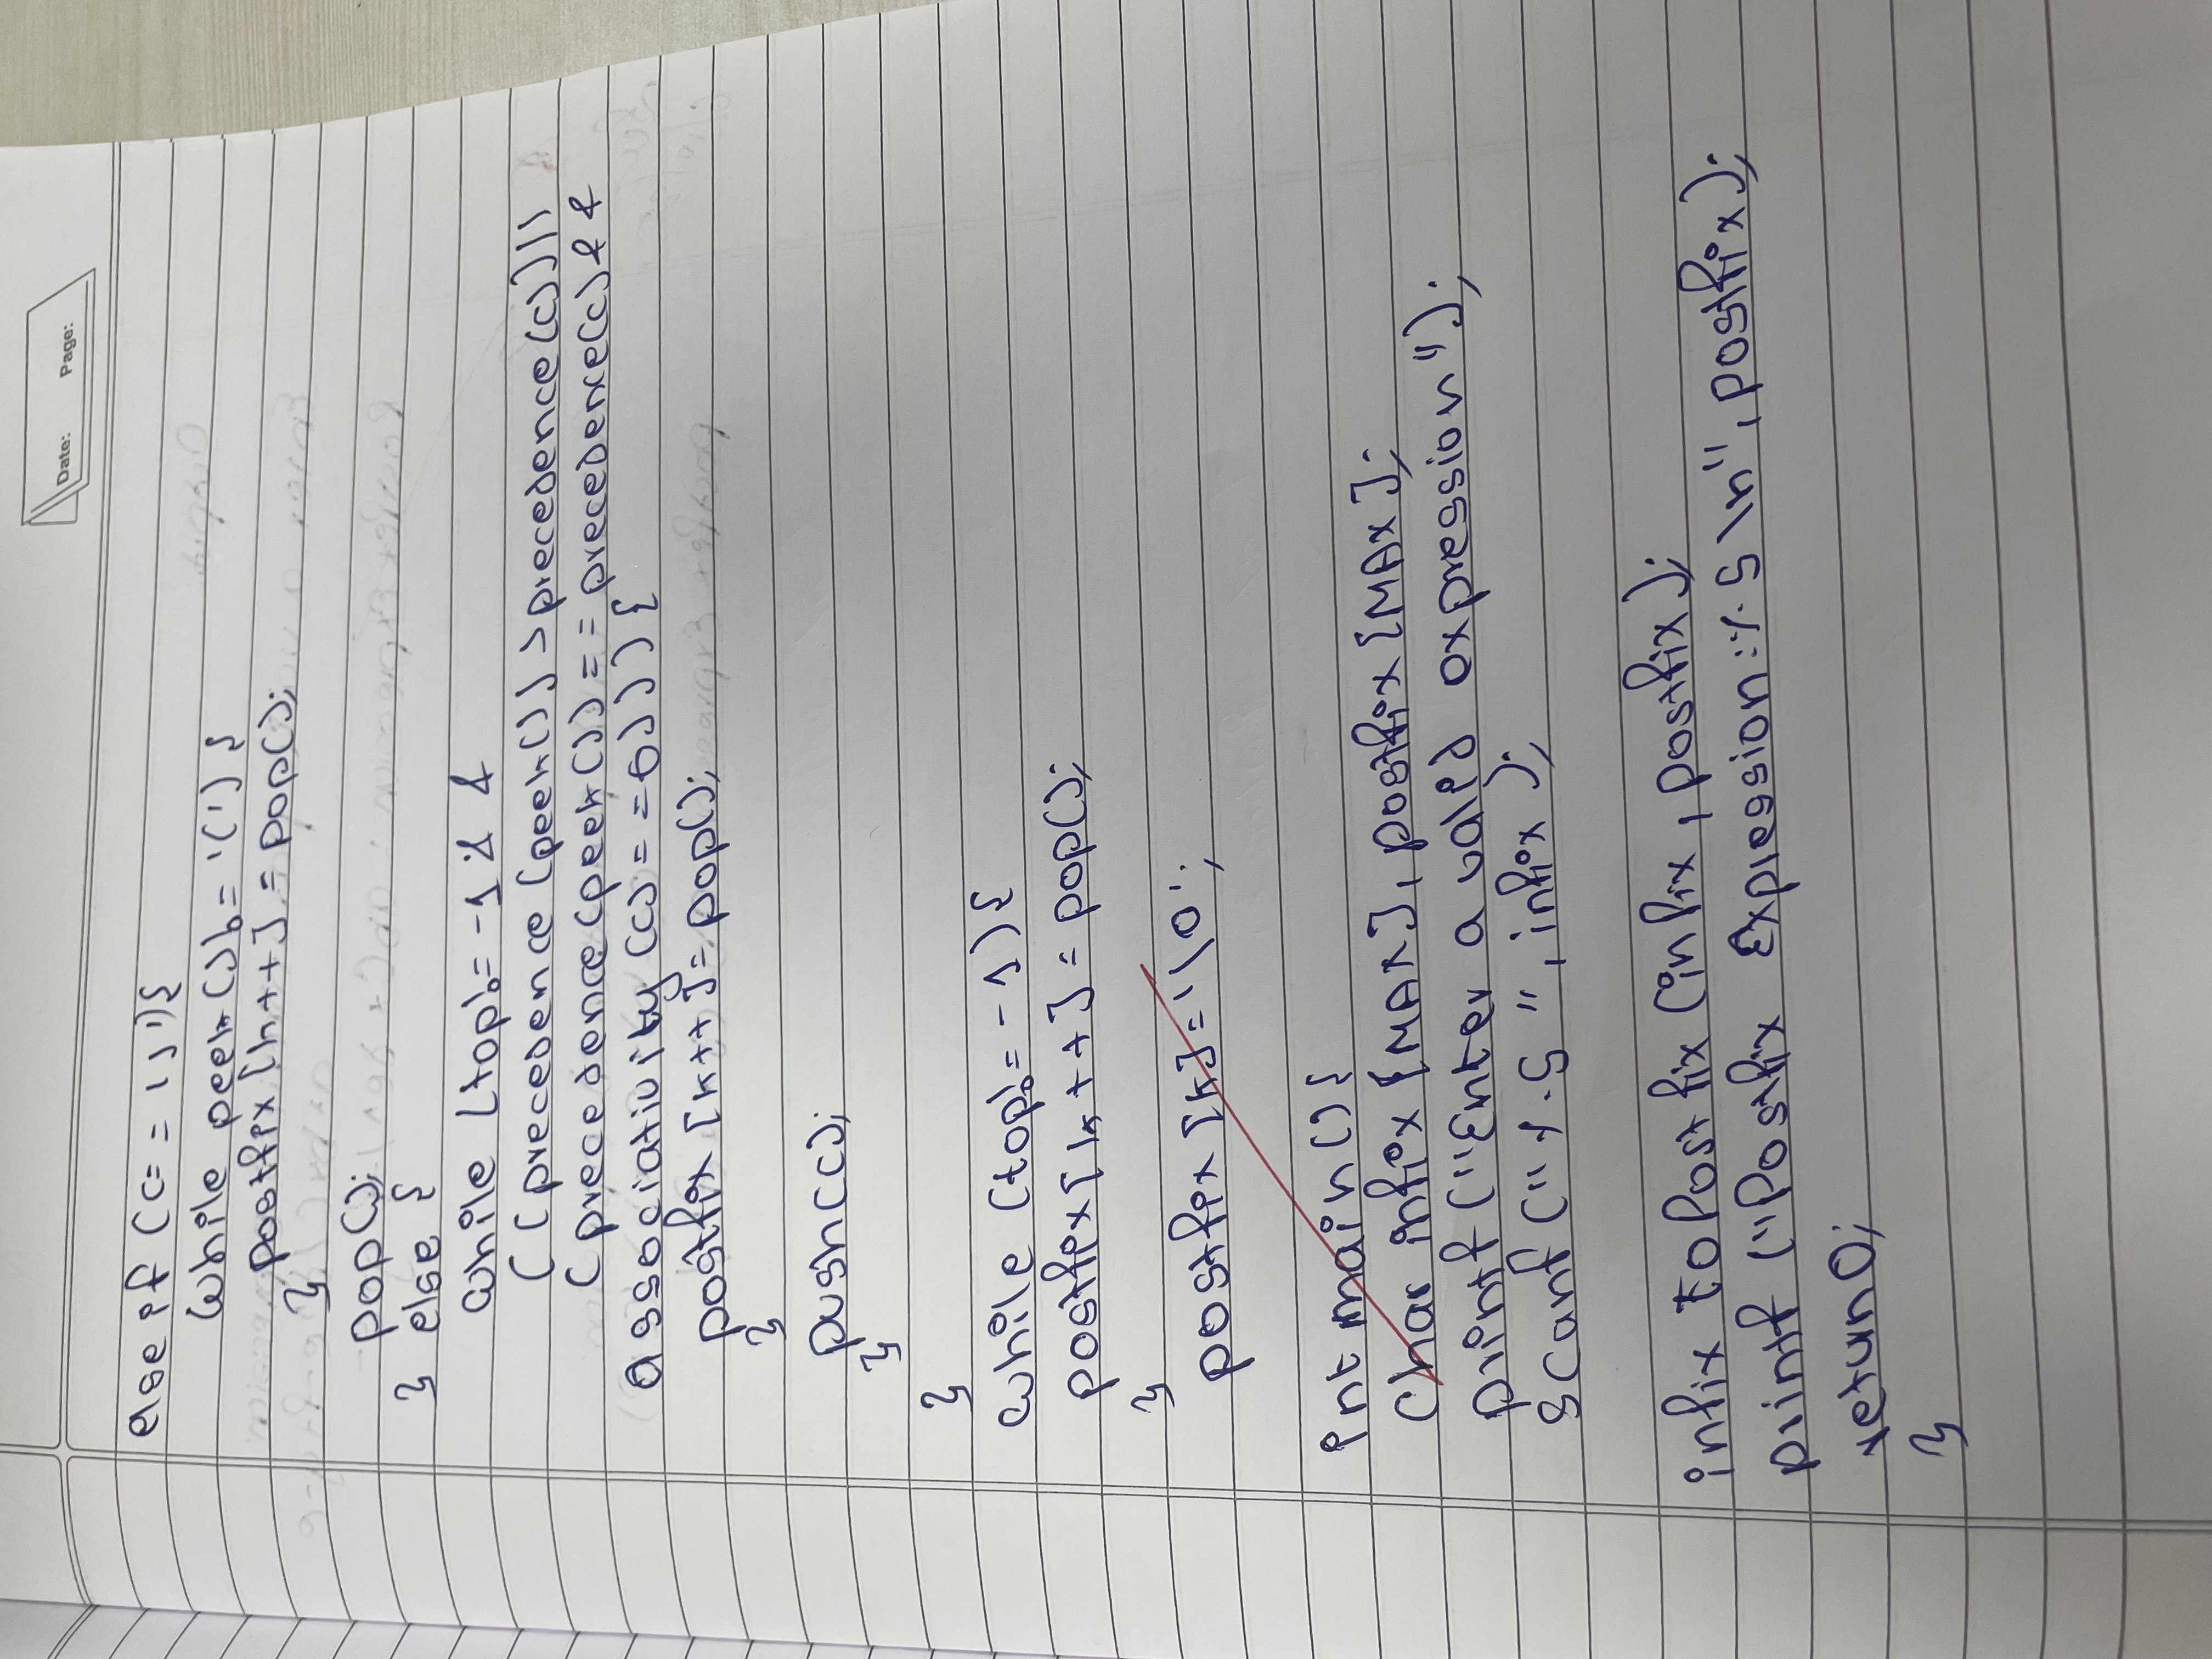 Date: Page:
else if (c== ')'){
while peek()!= '(') {
postfix [k++] = pop();
}
pop();
} else {
while (top!= -1 & &
((precedence (peek()) > precedence(c)) ||
(precedence(peek()) == precedence(c) & &
associativity (c) == 0))) {
postfix [k++] = pop();
}
push(c);
}
}
while (top!= -1) {
postfix[k++] = pop();
}
postfix [k] = '\0';
int main() {
Char infix [MAX], postfix [MAX];
printf ("Enter a valid expression");
scanf ("%s ", infix );
infix toPostfix (infix, postfix);
printf ("Postfix Expression: %s \n", postfix);
return 0;
}